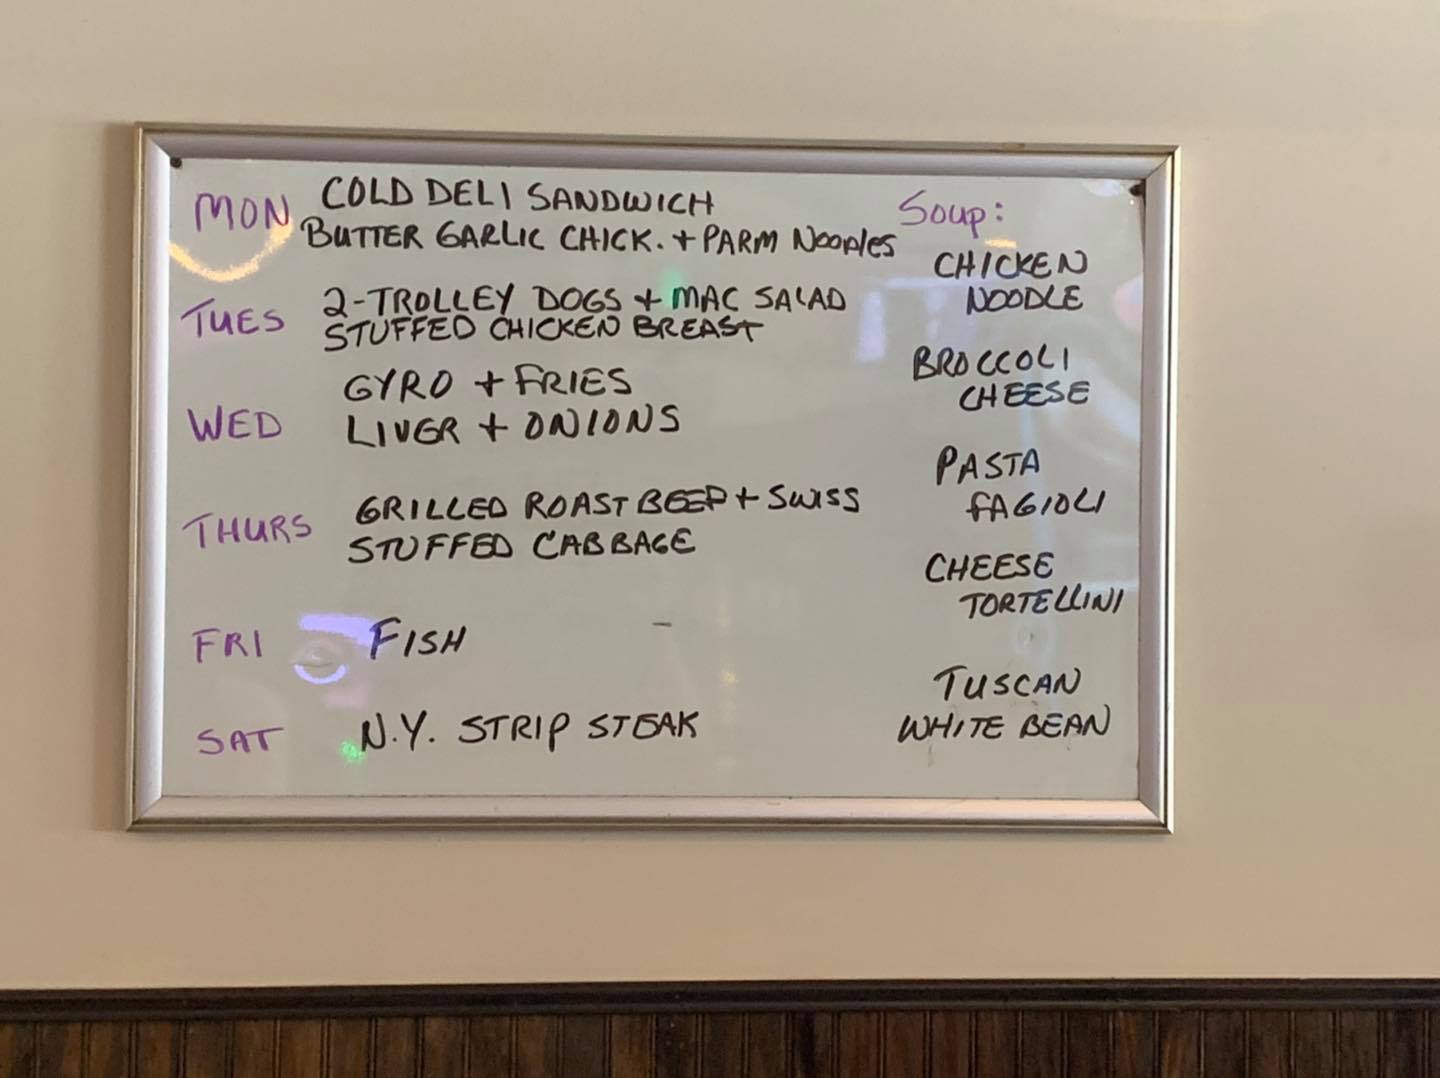 MON COLD DELI SANDWICH
BUTTER GARLIC CHICK. + PARM NOODLES
TUES 2-TROLLEY DOGS + MAC SALAD
STUFFED CHICKEN BREAST
GYRO + FRIES
WED LIVER + ONIONS
THURS GRILLED ROAST BEEF + SWISS
STUFFED CABBAGE
FRI FISH
SAT N.Y. STRIP STEAK
Soup:
CHICKEN
NOODLE
BROCCOLI
CHEESE
PASTA
FAGIOLI
CHEESE
TORTELLINI
TUSCAN
WHITE BEAN